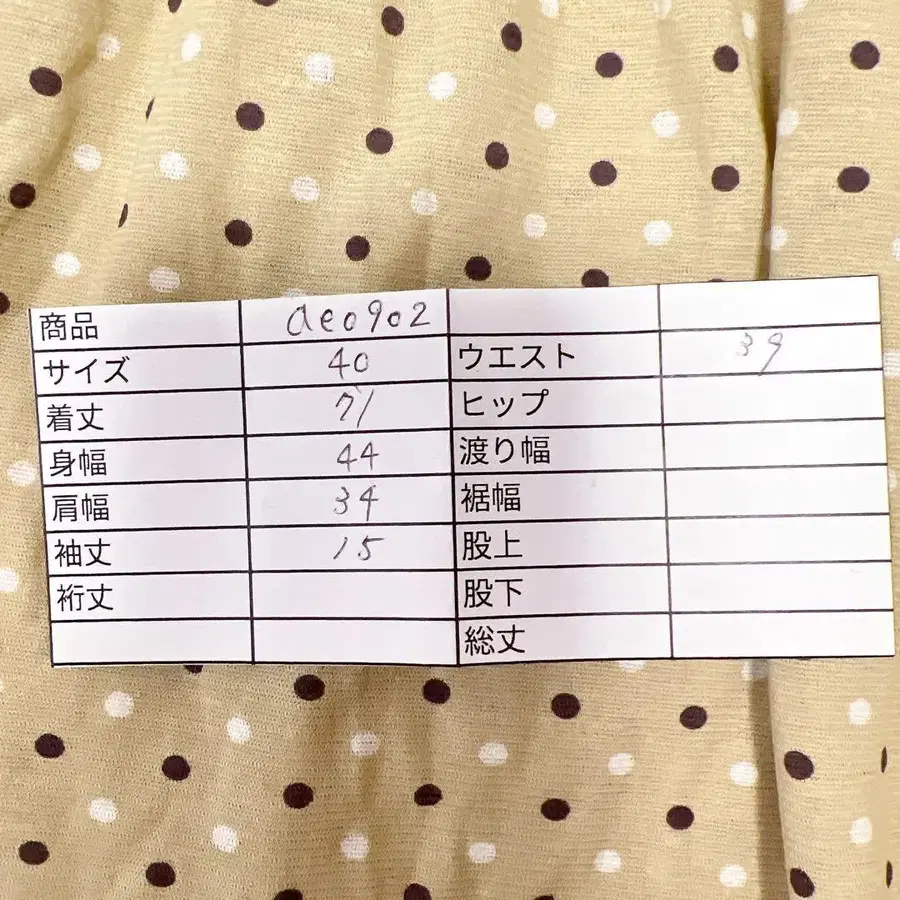 商品 ae0902
サイズ 40 ウエスト 39
着丈 71 ヒップ
身幅 44 渡り幅
肩幅 34 裾幅
袖丈 15 股上
裄丈 股下
総丈